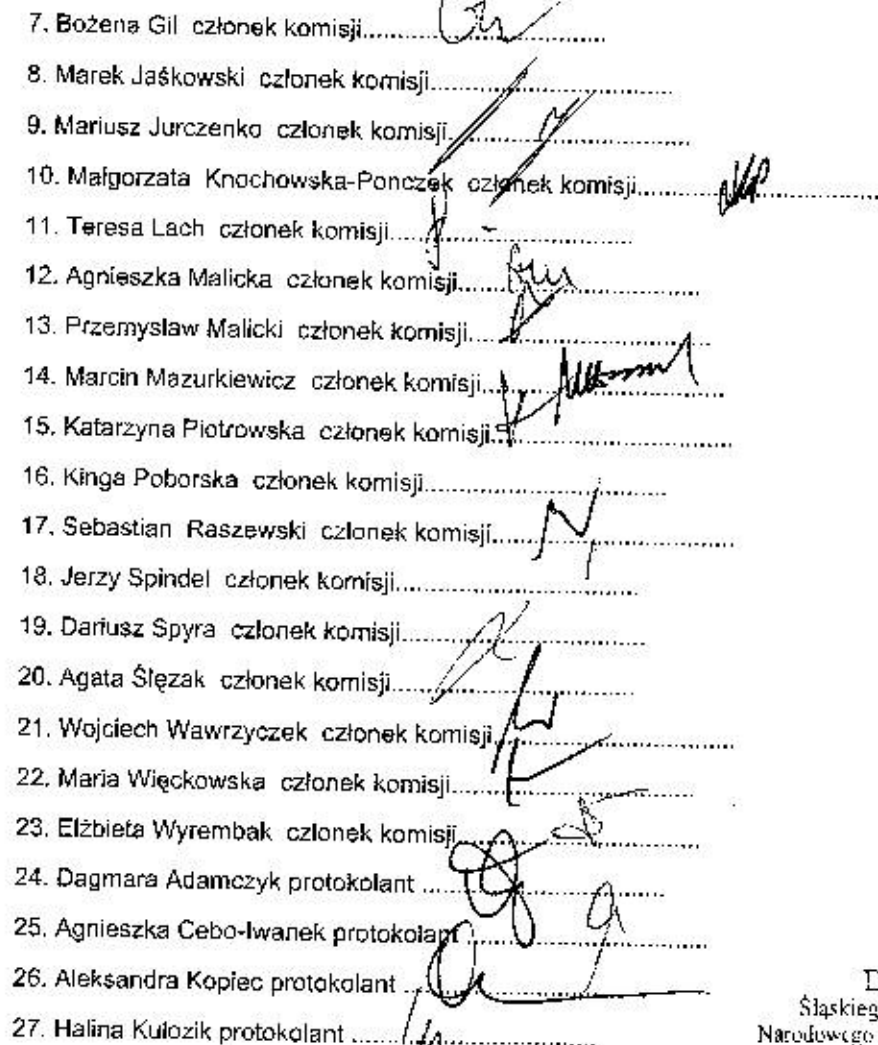 7. Bożena Gil członek komisji
8. Marek Jaśkowski członek komisji
9. Mariusz Jurczenko członek komisji
10. Małgorzata Knochowska-Ponczek członek komisji
11. Teresa Lach członek komisji
12. Agnieszka Malicka członek komisji
13. Przemyslaw Malicki członek komisji
14. Marcin Mazurkiewicz członek komisji
15. Katarzyna Piotrowska członek komisji
16. Kinga Poborska członek komisji
17. Sebastian Raszewski członek komisji
18. Jerzy Spindel członek komisji
19. Dariusz Spyra członek komisji
20. Agata Ślęzak członek komisji
21. Wojciech Wawrzyczek członek komisji
22. Maria Więckowska członek komisji
23. Elżbieta Wyrembak członek komisji
24. Dagmara Adamczyk protokolant
25. Agnieszka Cebo-Iwanek protokolant
26. Aleksandra Kopiec protokolant
27. Halina Kulozik protokolant
Śląskieg
Narodowego